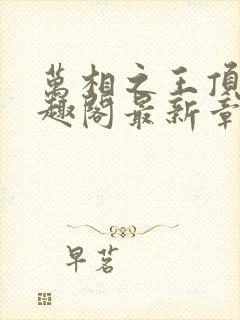 萬相之王頂
趣閣最新章
早茗